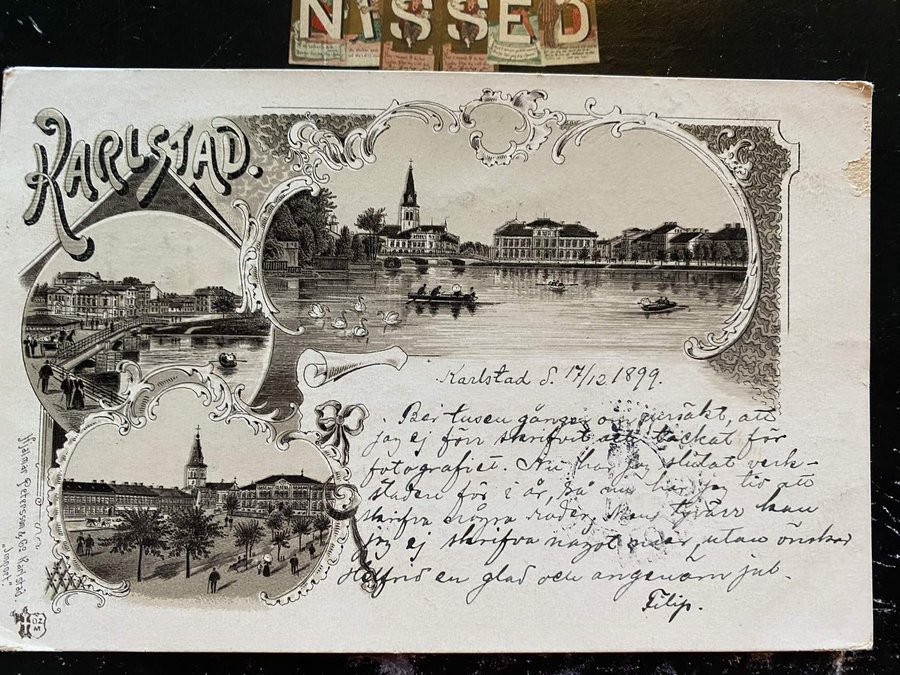 NISSED
KARLSTAD.
Karlstad d. 17/12 1899.
Ber tusen gånger om ursäkt, att
jag ej förr skrifvit och tackat för
fotografiet. Nu har jag slutat verk-
staden för i år, så nu har jag tid att
skrifva några rader, men tyvärr kan
jag ej skrifva något mer, utan önskar
en glad och angenäm jul.
Filip.
Hjalmar Petersson & Co. Karlstad.
"Import".